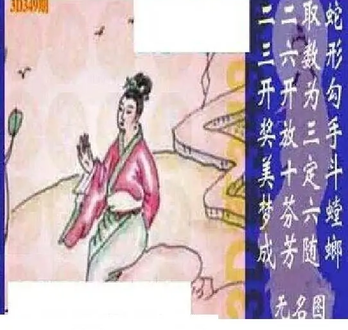 3D349期
蛇形勾手斗螳螂
取数为三定六随
二六开放十芬芳
二三开奖美梦成
无名图